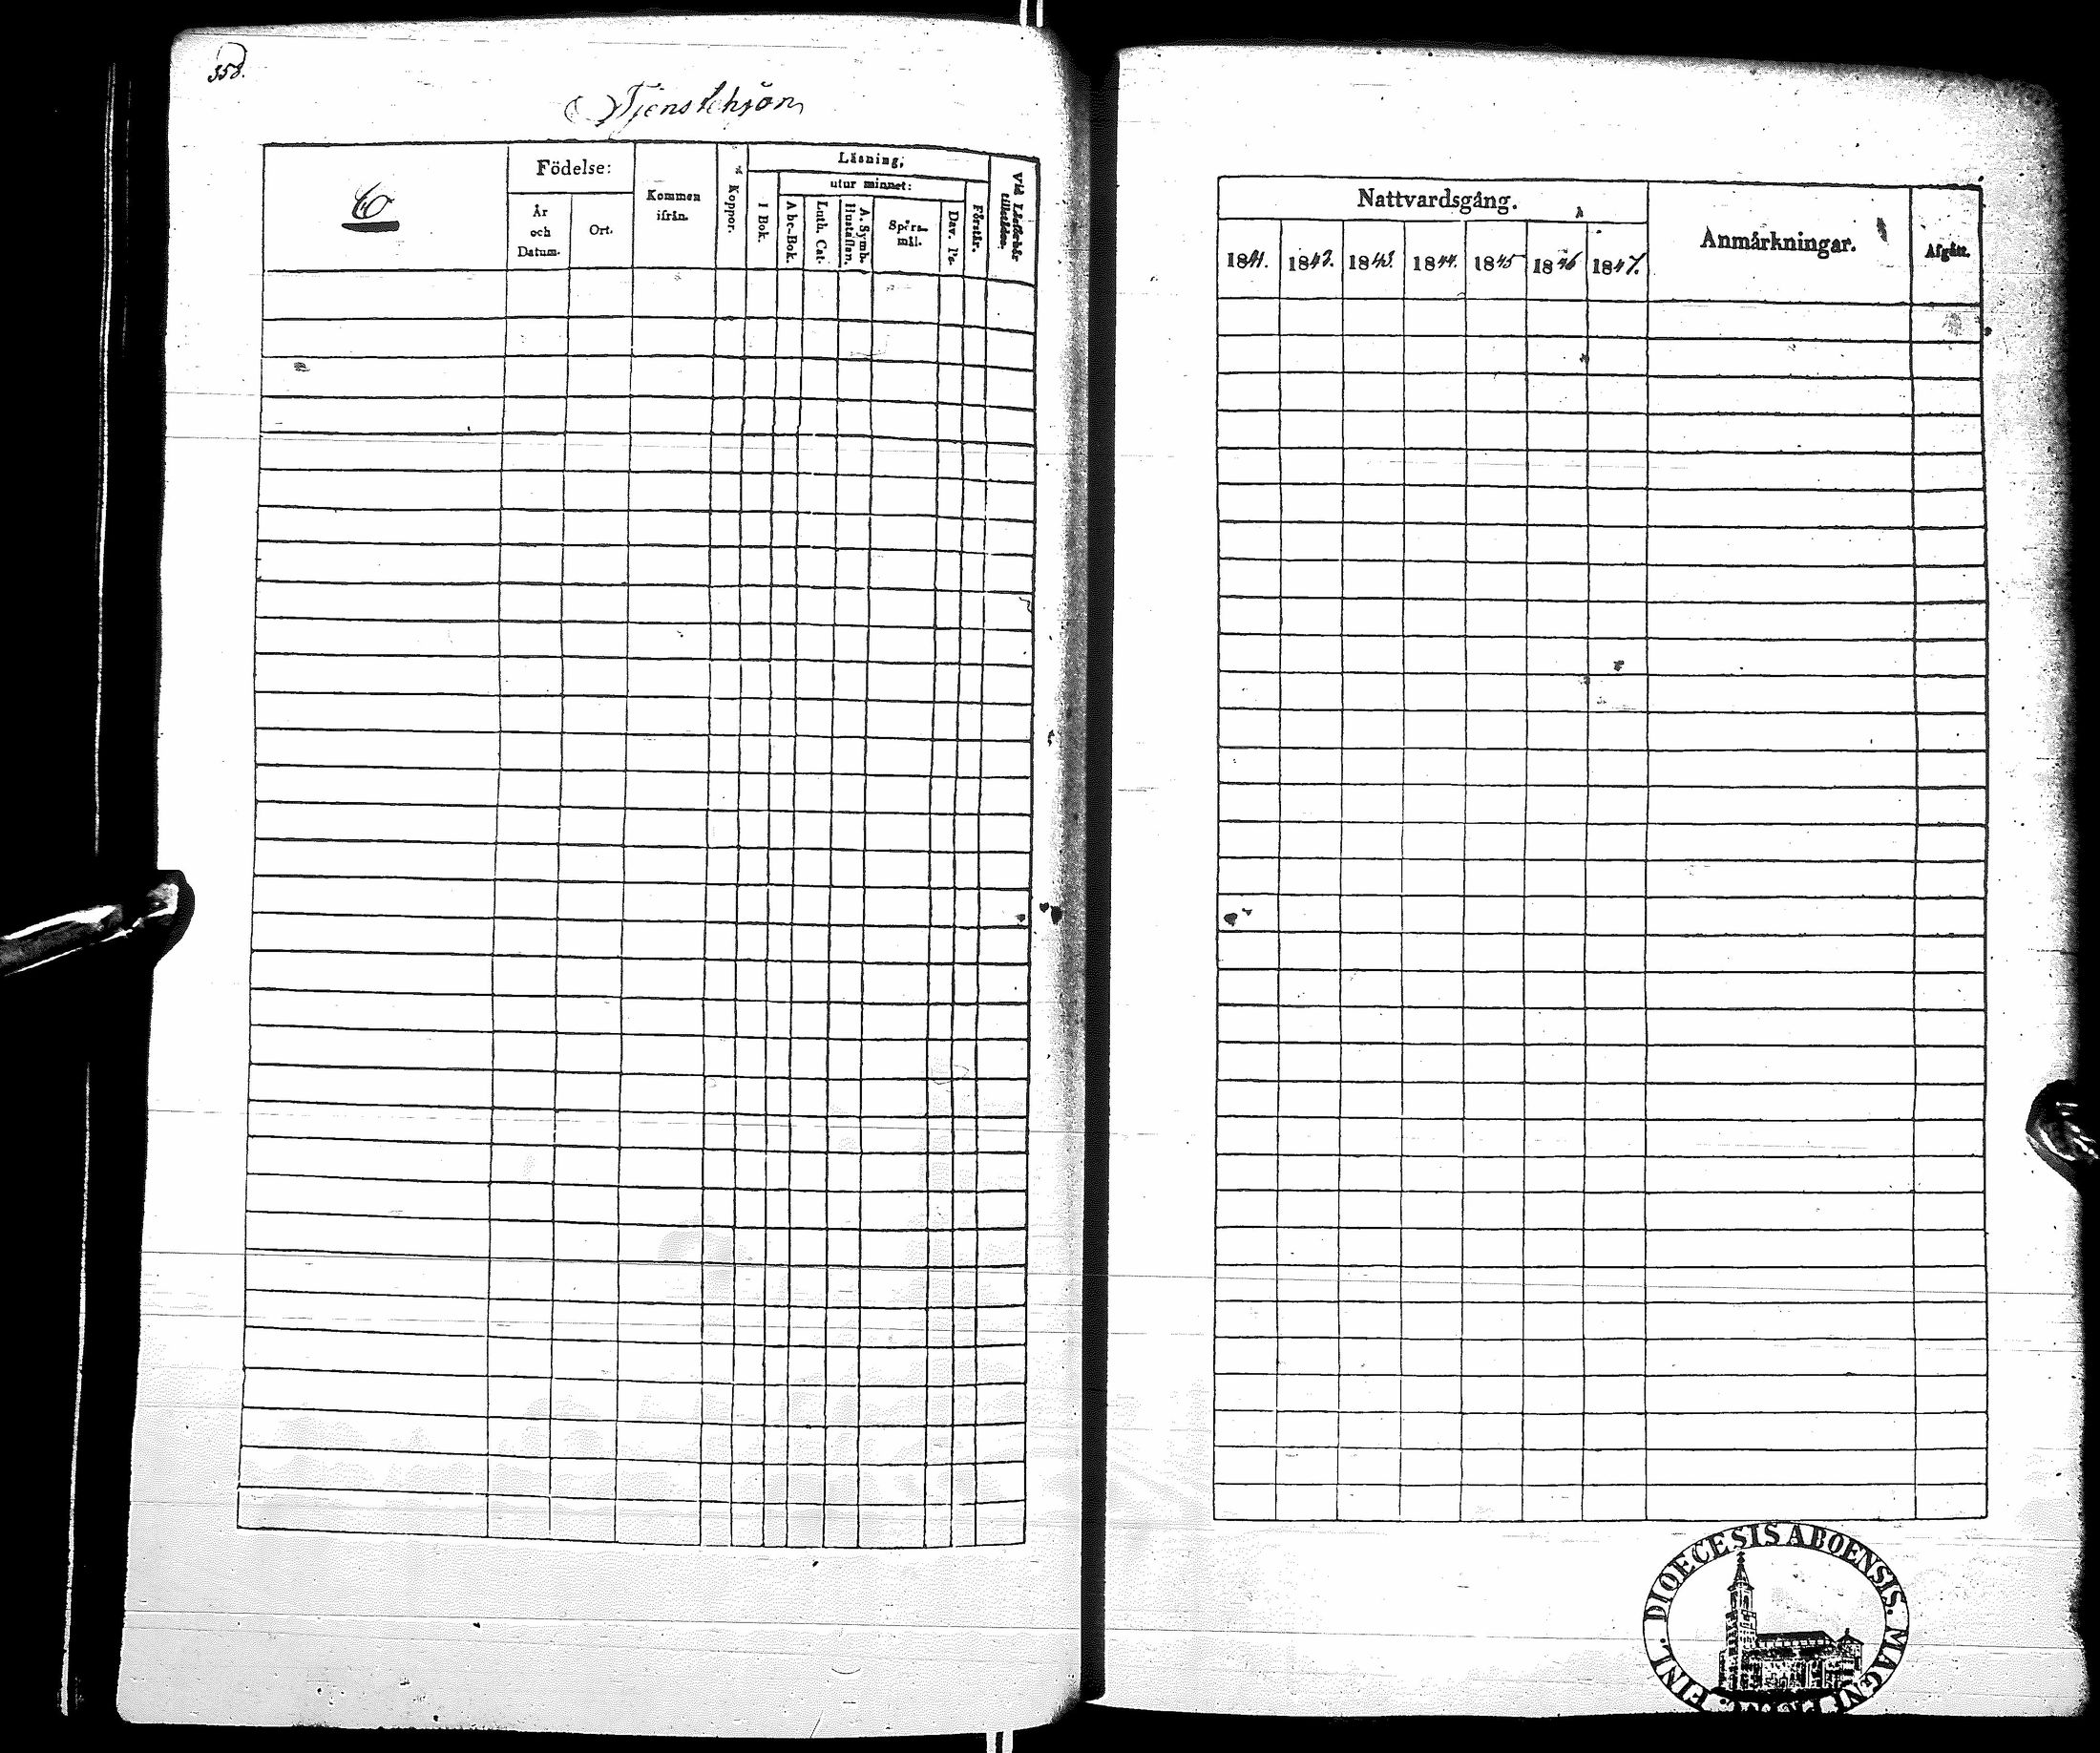 358.
Tjenstehjon
C
Födelse:
År
och
Datum.
Ort.
Kommen
ifrån.
Koppor.
Läsning,
I Bok.
utur minnet:
A bc-Bok.
Luth. Cat.
A. Symb.
Hustaflan.
Spörs-
mål.
Dav. Ps.
Förstår.
Vid Läsförhör
tillstädes.
Nattvardsgång.
1841.
1842.
1843.
1844.
1845
1846
1847.
Anmärkningar.
Afgått.
FINL. DIOECESIS ABOENSIS. MAGNI